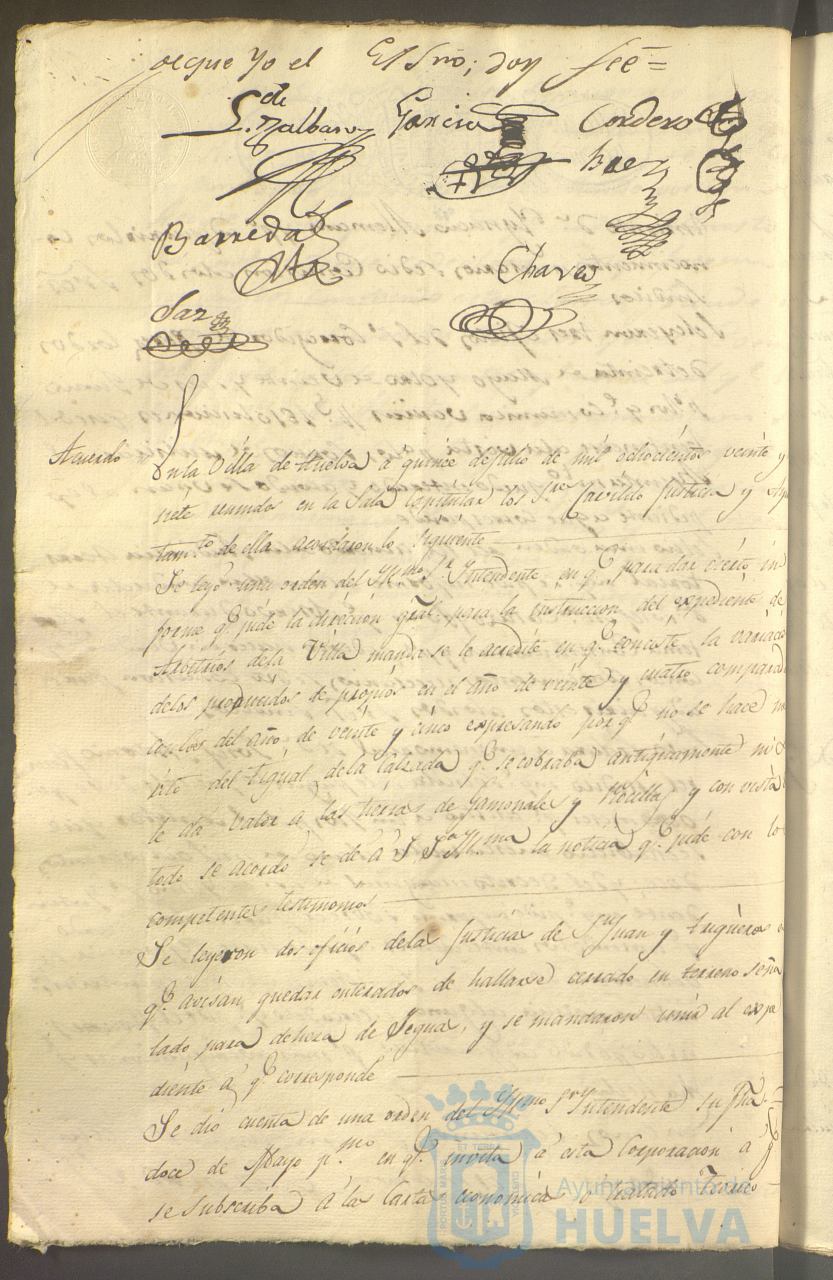 de que yo el Esno; doy fee=
L.do Nalbarro Garcia Cordero
Baez
Barreda
Chaves
Saz
Acuerdo En la Villa de Huelva á quince de Julio de mil ochocientos veinte y
siete reunidos en la Sala Capitular los Sres Cavildo Justicia y Ayu
tamto de ella acordaron lo siguiente
Se leyó una orden del Yllmo Sr Yntendente en q.e para dar cierto in
forme q.e pide la dirección gral para la instruccion del expediente de
Arbitrios dela Villa manda se le acredite en q.e consiste la variació
delos producidos de propios en el año de veinte y cuatro compara
con los del año de veinte y cinco expresando por q.e no se hace
rito del tigual dela Calzada q.e se cobraba antiguamente ni se
le da valor á las tierras de Jamonales y Rocillas y con vista
todo se acordó se de á S. Sa Yllma la noticia q.e pide con lo
competentes testimonios
Se leyeron dos oficios dela Justicia de Sn Juan y trigueros
q.e avisan quedar enterados de hallarse cerrado en terreno seña
lado para deheza de Yegua, y se mandaron unir al expe
diente á q.e corresponde
Se dió cuenta de una orden del Yllmo Sr Yntendente su fha
doce de Mayo pmo en q.e invita á esta Corporacion á q
se subscriba á la Carta económica ó tratado Teorico
Ayuntamiento de
HUELVA